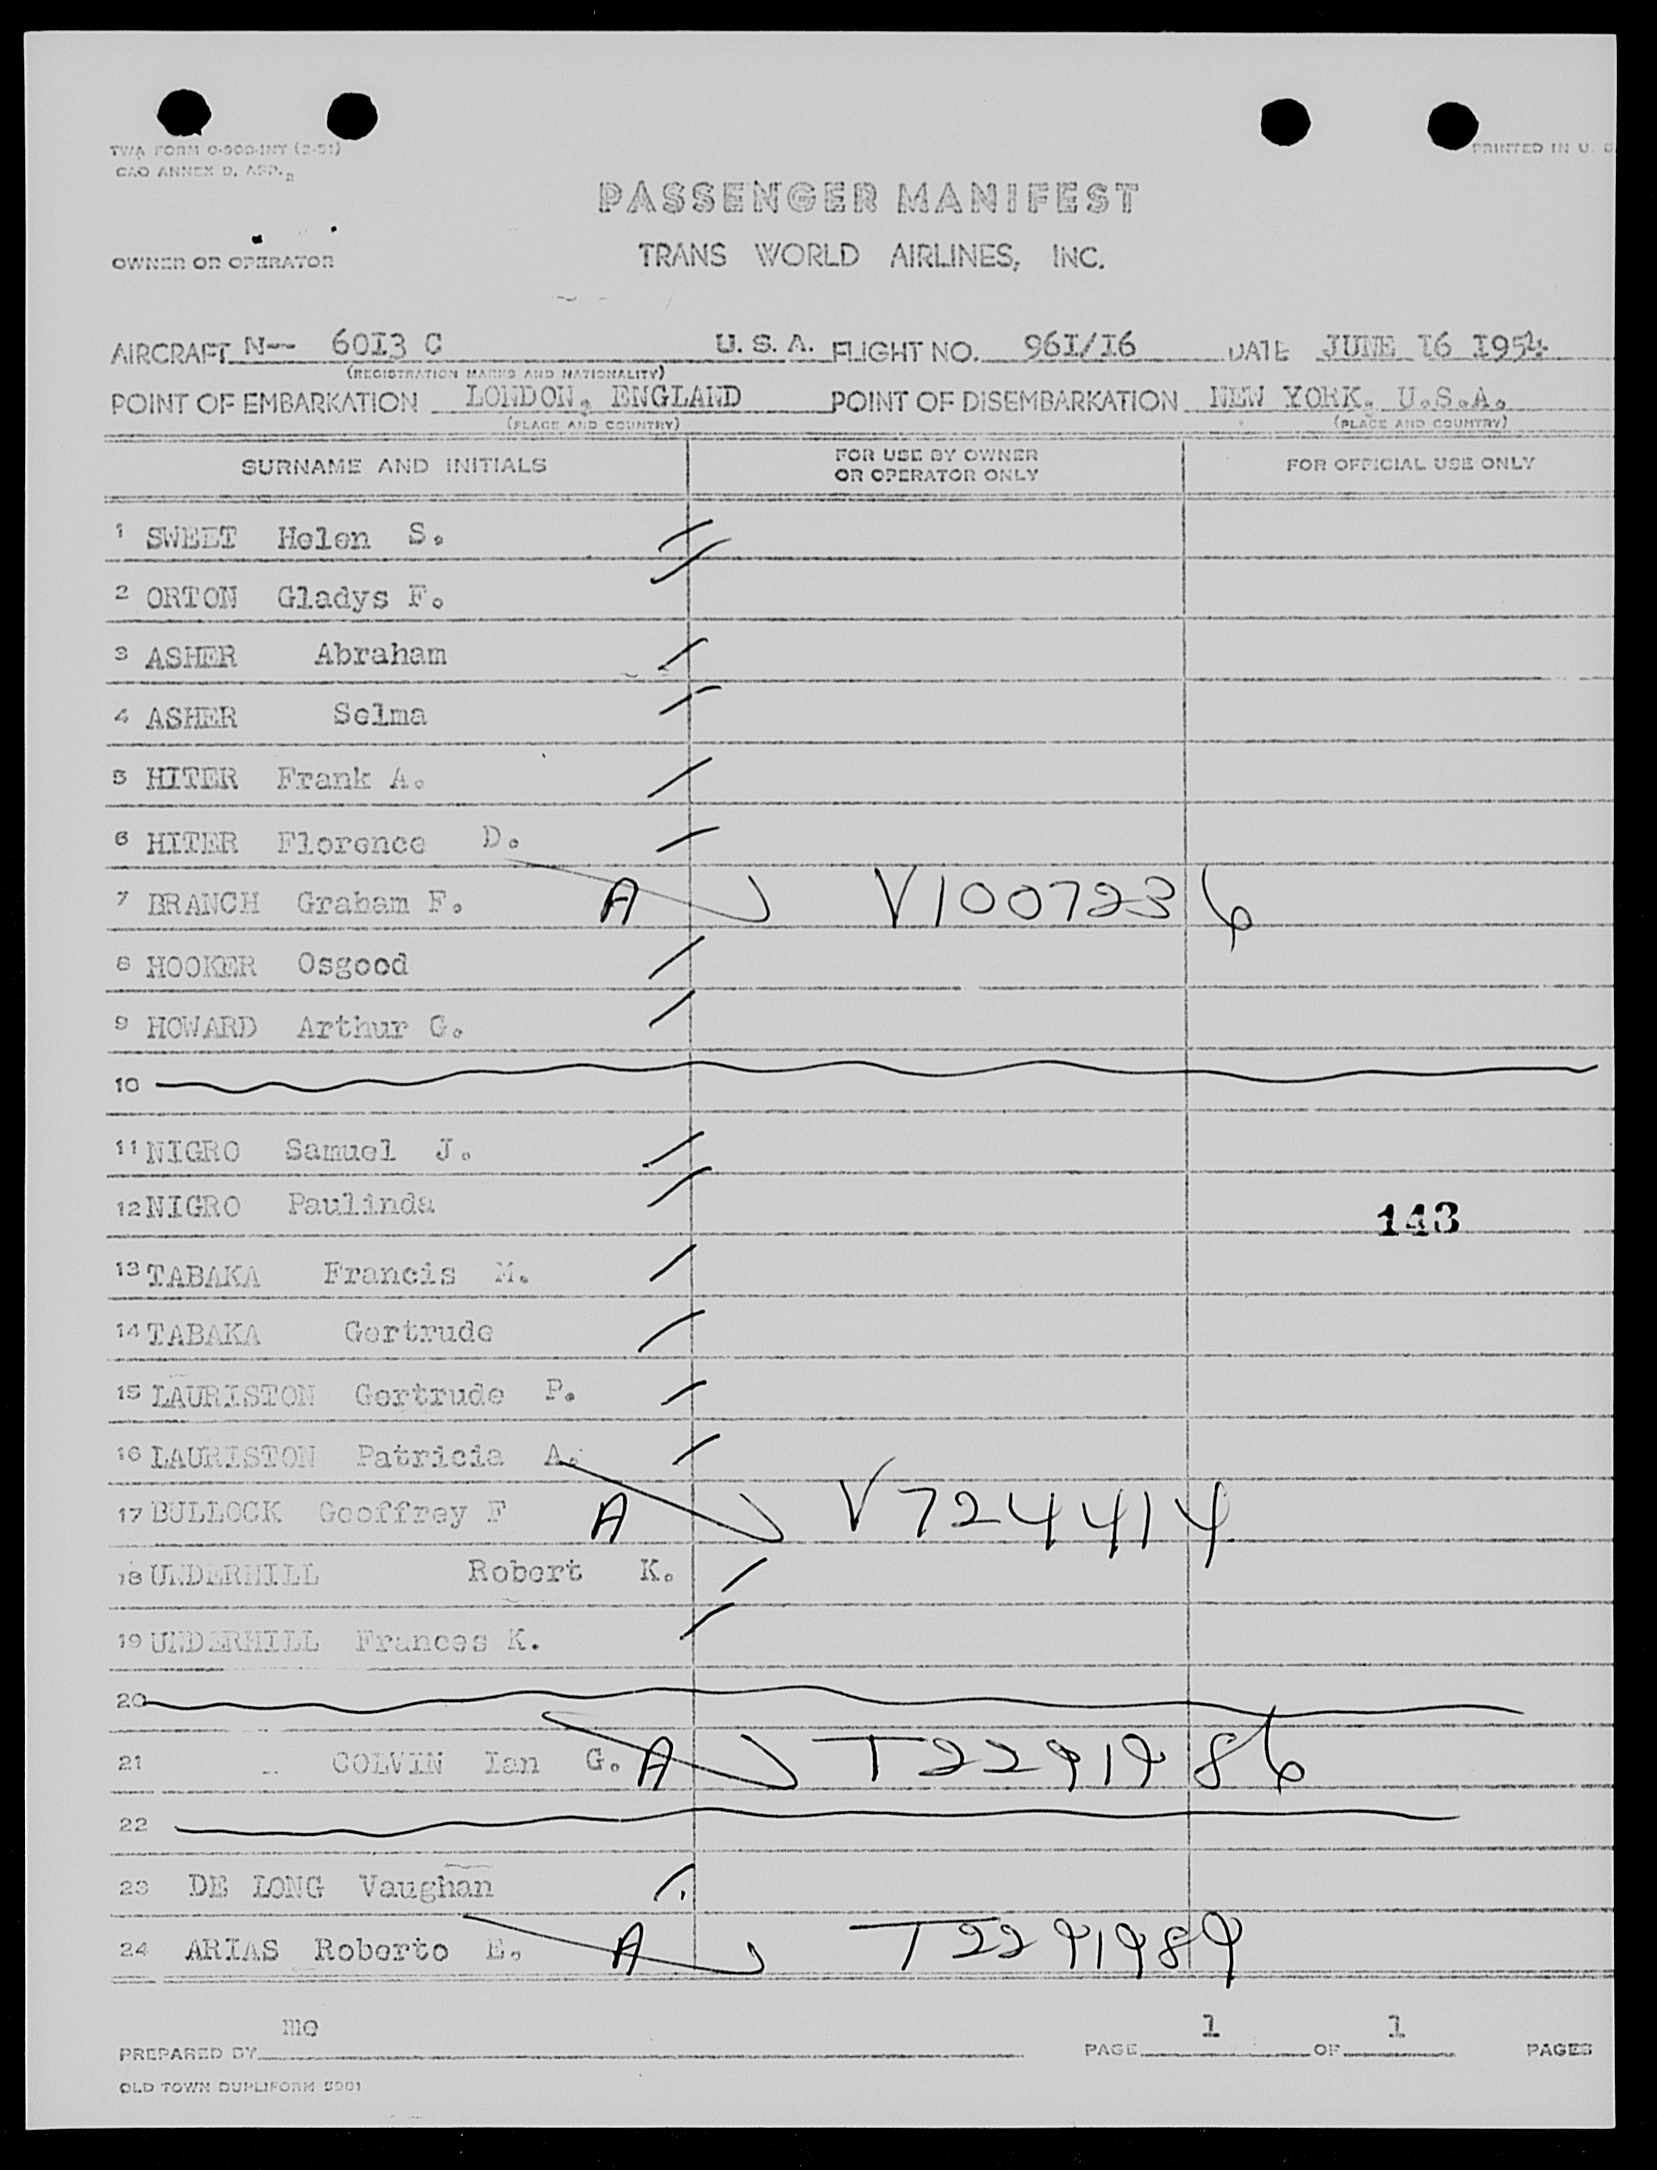 TWA FORM O-900-INT (2-51)
PRINTED IN U. S.
CAO ANNEX D, APP. 2
PASSENGER MANIFEST
OWNER OR OPERATOR
TRANS WORLD AIRLINES, INC.
AIRCRAFT N-- 6013 C U. S. A. FLIGHT NO. 961/16 DATE JUNE 16 1954
(REGISTRATION MARKS AND NATIONALITY)
POINT OF EMBARKATION LONDON, ENGLAND POINT OF DISEMBARKATION NEW YORK, U.S.A.
(PLACE AND COUNTRY) (PLACE AND COUNTRY)
SURNAME AND INITIALS FOR USE BY OWNER OR OPERATOR ONLY FOR OFFICIAL USE ONLY
1 SWEET Helen S.
2 ORTON Gladys F.
3 ASHER Abraham
4 ASHER Selma
5 HITER Frank A.
6 HITER Florence D.
7 BRANCH Graham F. A V1007236
8 HOOKER Osgood
9 HOWARD Arthur G.
10
11 NIGRO Samuel J.
12 NIGRO Paulinda 143
13 TABAKA Francis M.
14 TABAKA Gertrude
15 LAURISTON Gertrude P.
16 LAURISTON Patricia A.
17 BULLOCK Geoffrey F A V724414
18 UNDERHILL Robert K.
19 UNDERHILL Frances K.
20
21 COLVIN Ian G. A T2291986
22
23 DE LONG Vaughan
24 ARIAS Roberto E. A T2291989
PREPARED BY me PAGE 1 OF 1 PAGES
OLD TOWN DUPLIFORM 5901